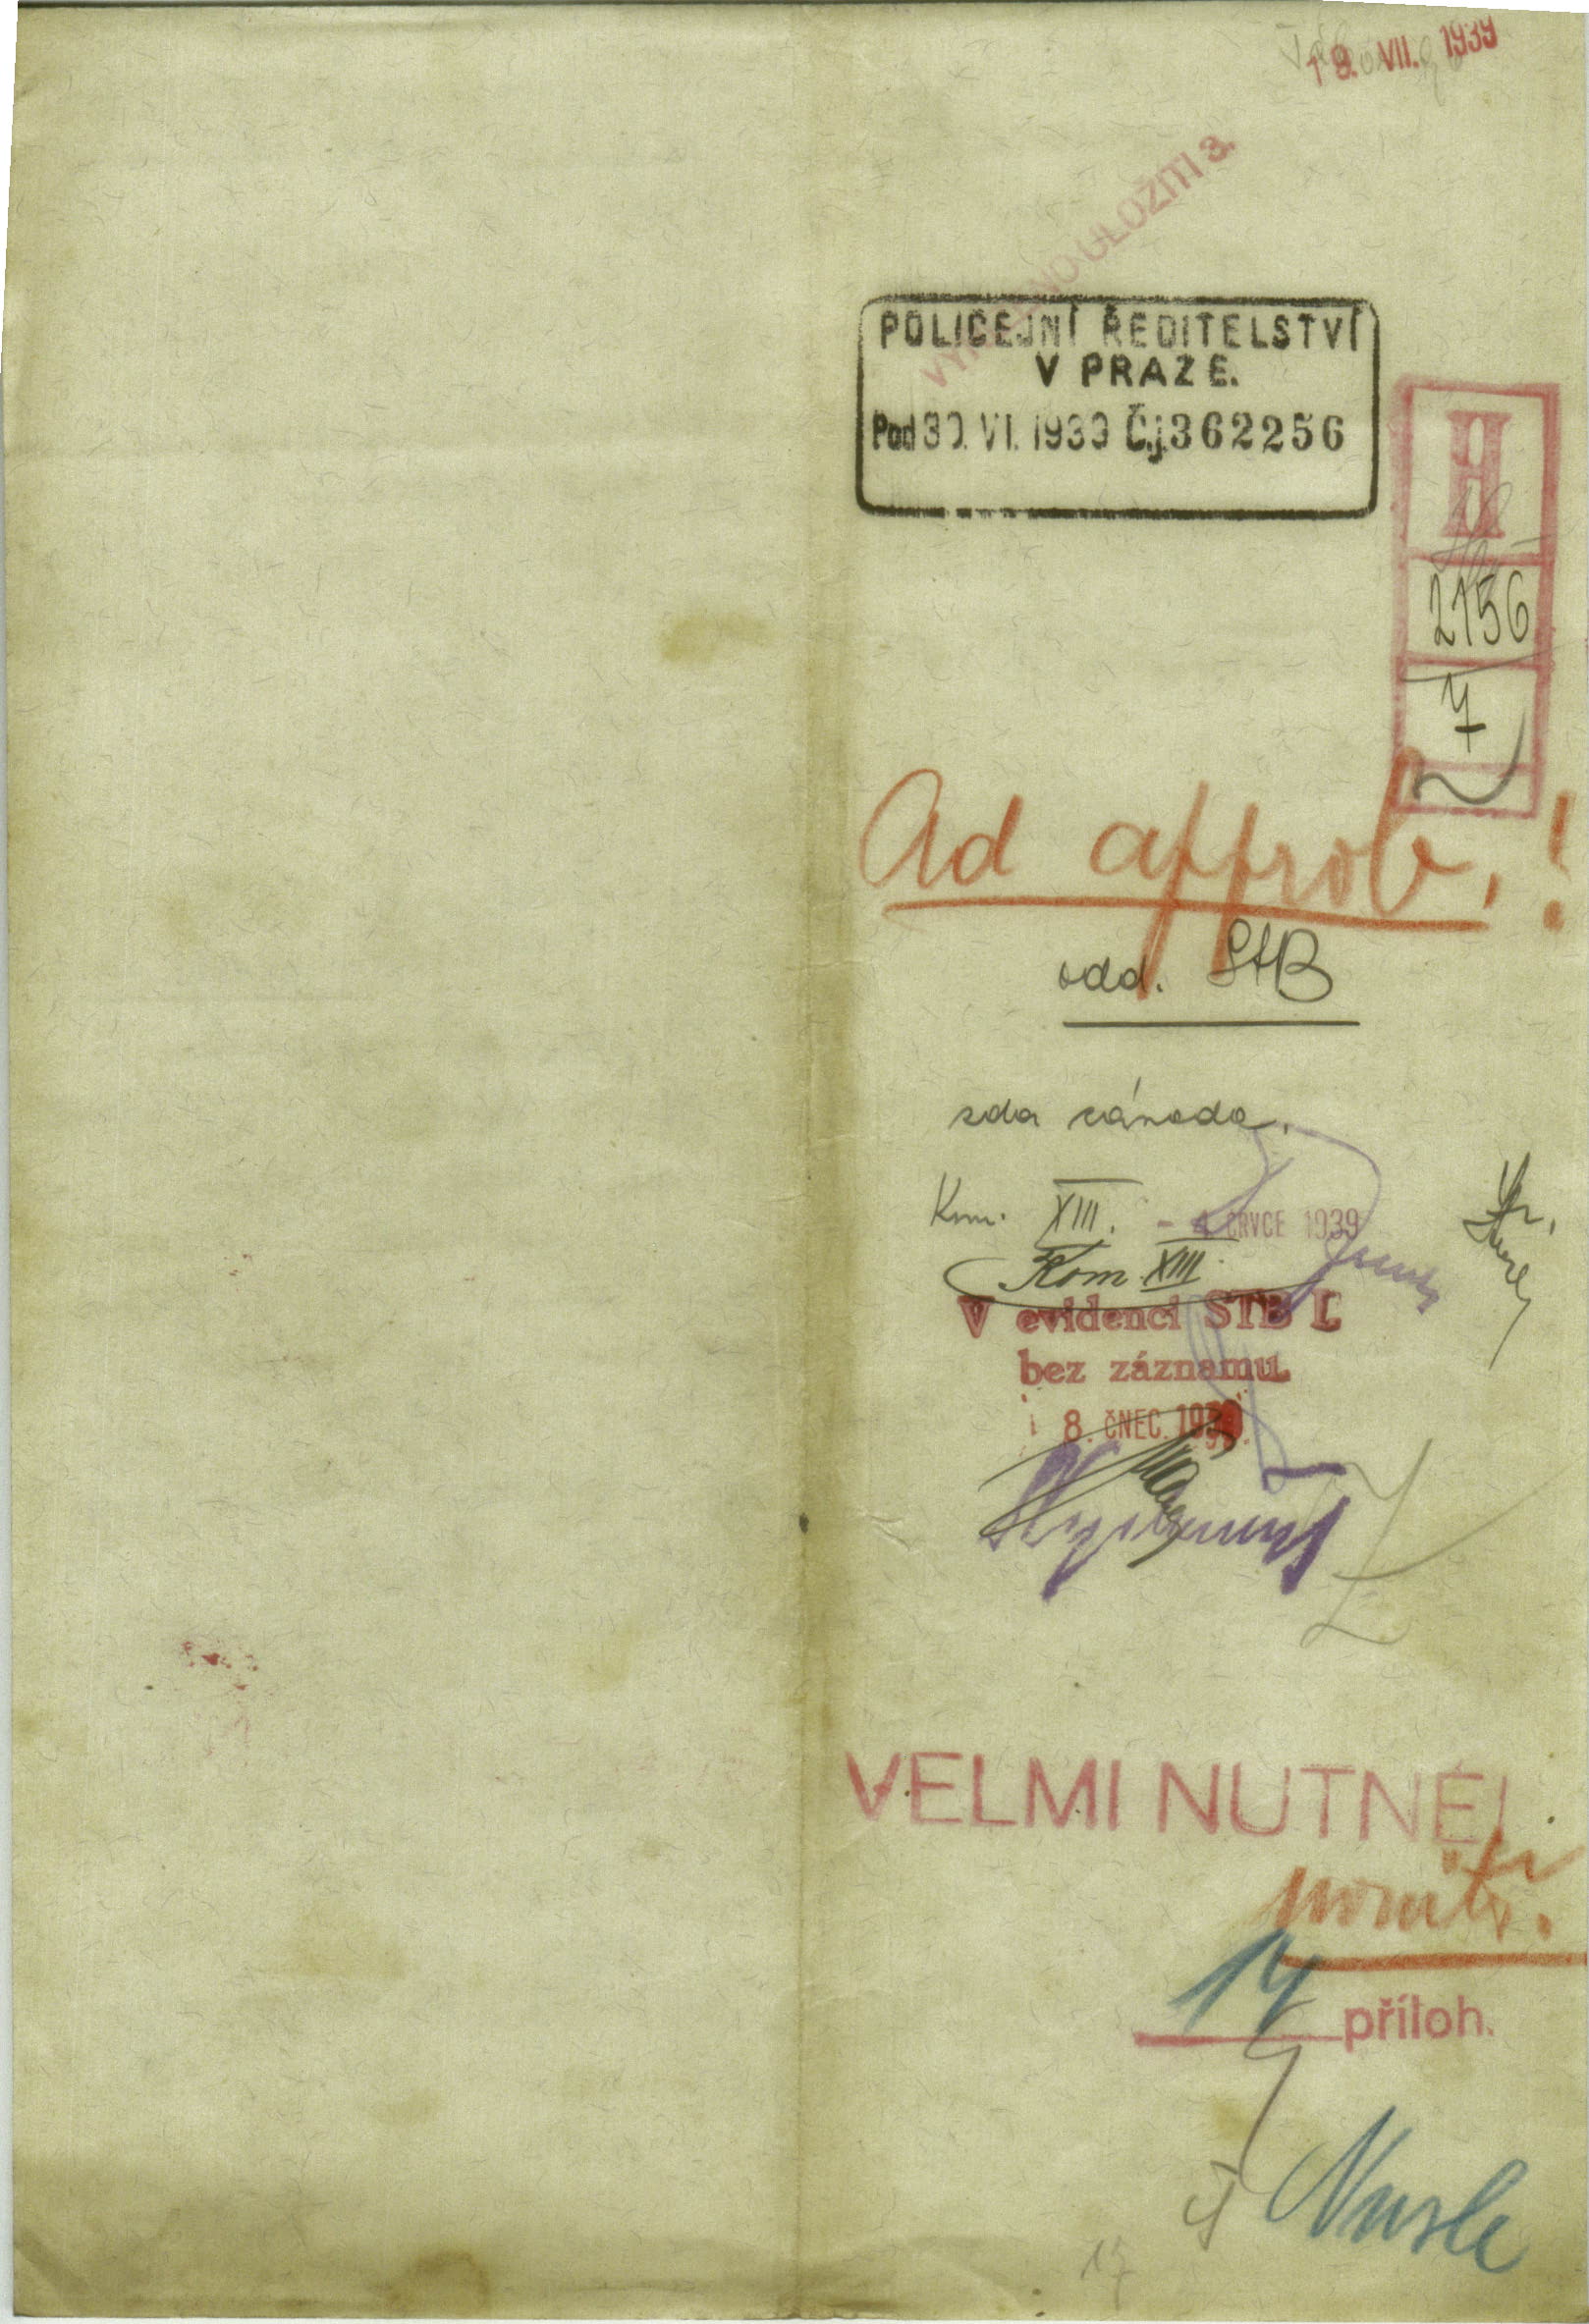 18. VII. 1939
ULOŽITI 3.
POLICEJNÍ ŘEDITELSTVÍ
V PRAZE.
Pod 30. VI. 1939 Č.j. 362256
H
2156
7
Ad approb.!
odd. StB
zda závada.
Kom. XIII. - 4 ČRVCE 1939
Kom. XIII.
V evidenci STB I.
bez záznamu.
8. ČNEC. 1939.
VELMI NUTNÉ!
14
příloh.
Nusle
17